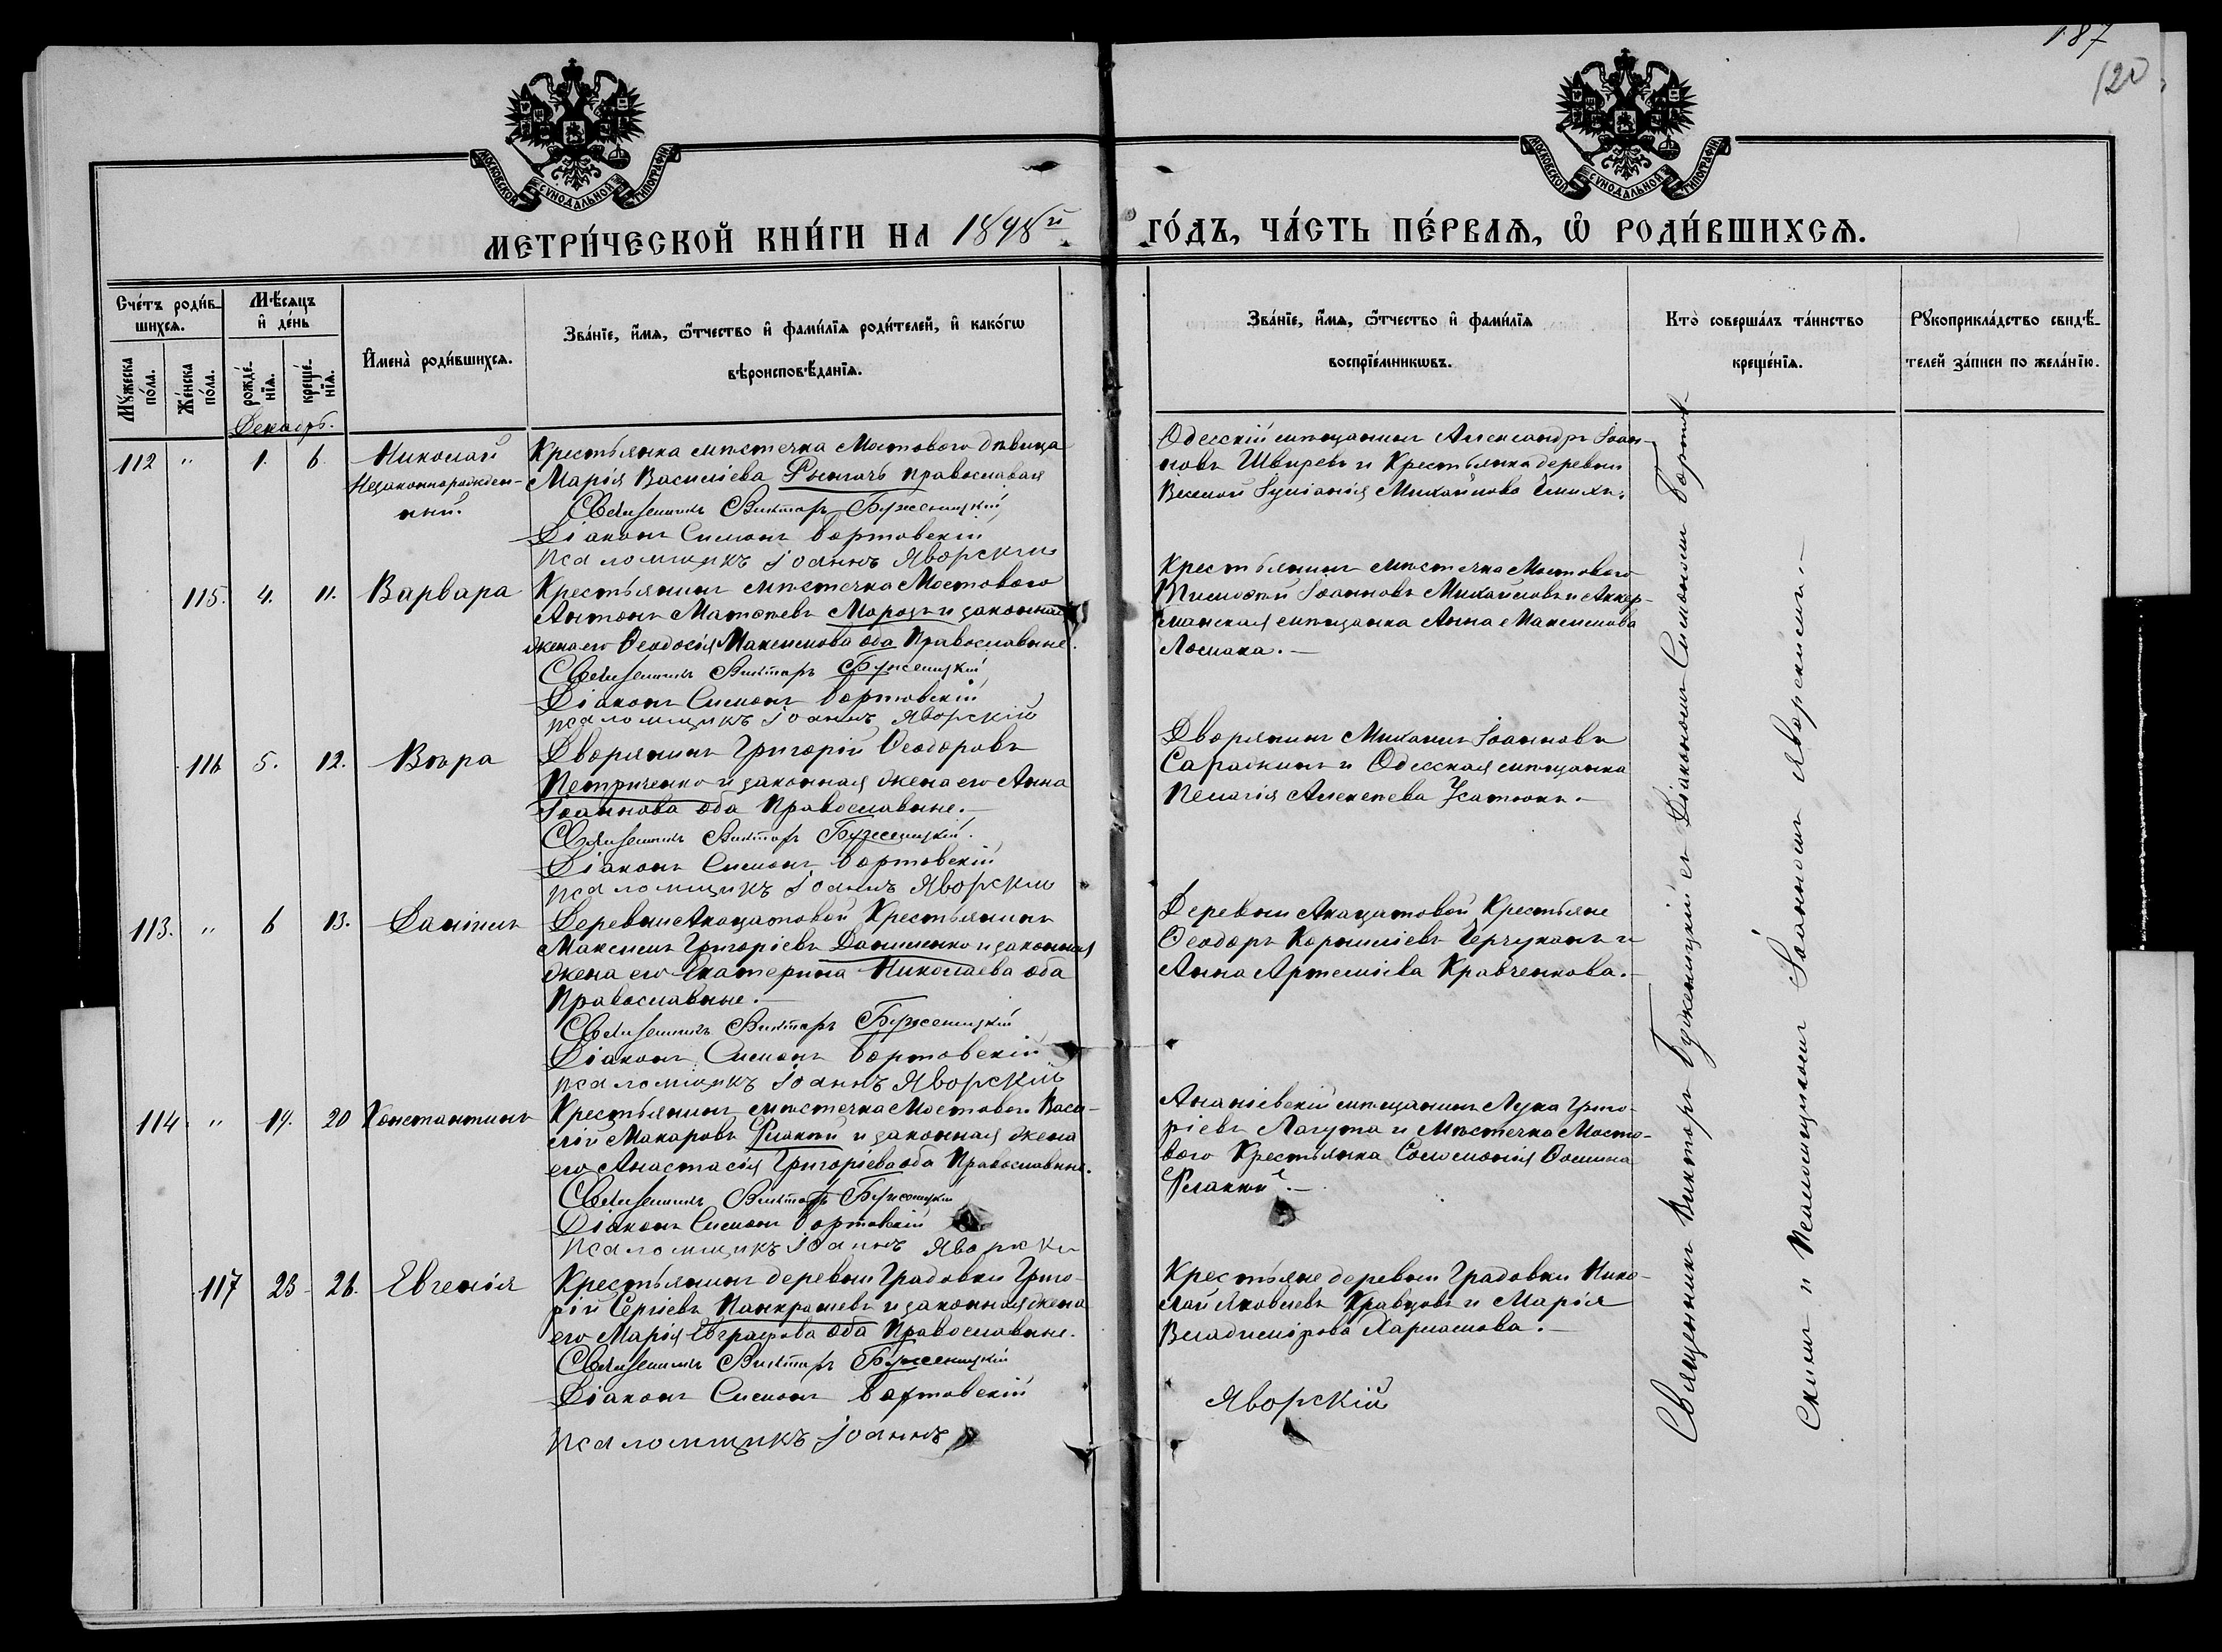 187
120
МОСКОВСКОЙ СѴНОДАЛЬНОЙ ТИПОГРАФІИ
МОСКОВСКОЙ СѴНОДАЛЬНОЙ ТИПОГРАФІИ
МЕТРИ́ЧЕСКОЙ КНИ́ГИ НА 1898й ГО́ДЪ, ЧА́СТЬ ПЕ́РВАѦ, Ѡ҆ РОДИ́ВШИХСѦ.
Сче́тъ роди́в-
шихсѧ.
Мꙋ́жеска по́ла.
Же́нска по́ла.
Мѣ́сѧцъ
и҆ де́нь
рожде́-нїѧ.
креще́-нїѧ.
И҆мена̀ роди́вшихсѧ.
Зва́нїе, и҆́мѧ, ѻ҆́тчество и҆ фами́лїѧ роди́телей, и҆ како́гѡ
вѣроисповѣ́данїѧ.
Зва́нїе, и҆́мѧ, ѻ҆́тчество и҆ фами́лїѧ
воспрїе́мникѡвъ.
Кто̀ соверша́лъ та́инство
креще́нїѧ.
Рꙋкоприкла́дство свидѣ́-
телей за́писи по жела́нїю.
Декабрь.
112 " 1. 6. Николай
Незаконнорожден-
ный.
Крестьянка мѣстечка Мостового дѣвица
Марія Василіева православная
Священникъ Викторъ Буженицкій
Діаконъ Симонъ Бортовскій
Псаломщикъ Іоаннъ Яворскій
Одесскій мѣщанинъ Александръ Іоан-
новъ Швыревъ и Крестьянка деревни
Михайлова
115. 4. 11. Варвара
Крестьянинъ мѣстечка Мостового
Антонъ Матѳеевъ Морозъ и законная
жена его Ѳеодосія Максимова оба Православные.
Священникъ Викторъ Буженицкій
Діаконъ Симонъ Бортовскій
Псаломщикъ Іоаннъ Яворскій
Крестьянинъ мѣстечка Мостового
Тимоѳей Іоанновъ Михайловъ и Аккер-
манская мѣщанка Анна Максимова
116 5. 12. Вѣра
Дворянинъ Григорій Ѳеодоровъ
Петриченко и законная жена его Анна
Іоаннова оба Православные.—
Священникъ Викторъ Буженицкій.
Діаконъ Симонъ Бортовскій
Псаломщикъ Іоаннъ Яворскій
Дворянинъ Михаилъ Іоанновъ
и Одесская мѣщанка
Пелагія Алексѣева Усатюкъ.—
113. " 6 13. Даніилъ
Деревни Акацатовой Крестьянинъ
Максимъ Григоріевъ Даниленко и законная
жена его Екатерина Николаева оба
Православные.—
Священникъ Викторъ Буженицкій
Діаконъ Симонъ Бортовскій
Псаломщикъ Іоаннъ Яворскій
Деревни Акацатовой Крестьяне
Ѳеодоръ Корниліевъ и
Анна Артеміева Кравченкова.—
114. " 19. 20 Константинъ
Крестьянинъ мѣстечка Мостового Васи-
лій Макаровъ и законная жена
его Анастасія Григоріева оба Православные.
Священникъ Викторъ Буженицкій
Діаконъ Симонъ Бортовскій
Псаломщикъ Іоаннъ Яворскій
Ананіевскій мѣщанинъ Лука Григо-
ріевъ Лагута и Мѣстечка Мосто-
вого Крестьянка Соломонія Ѳомина
117 23 26. Евгенія
Крестьянинъ деревни Градовки Григо-
рій Сергіевъ Панкратьевъ и законная жена
его Марія Евграфова оба Православные.
Священникъ Викторъ Буженицкій
Діаконъ Симонъ Бортовскій
Псаломщикъ Іоаннъ Яворскій
Крестьяне деревни Градовки Нико-
лай Яковлевъ Кравцовъ и Марія
Владимірова Харламова.—
Священникъ Викторъ Буженицкій съ Діакономъ Симономъ Бортов-
скимъ и Псаломщикомъ Іоанномъ Яворскимъ.—